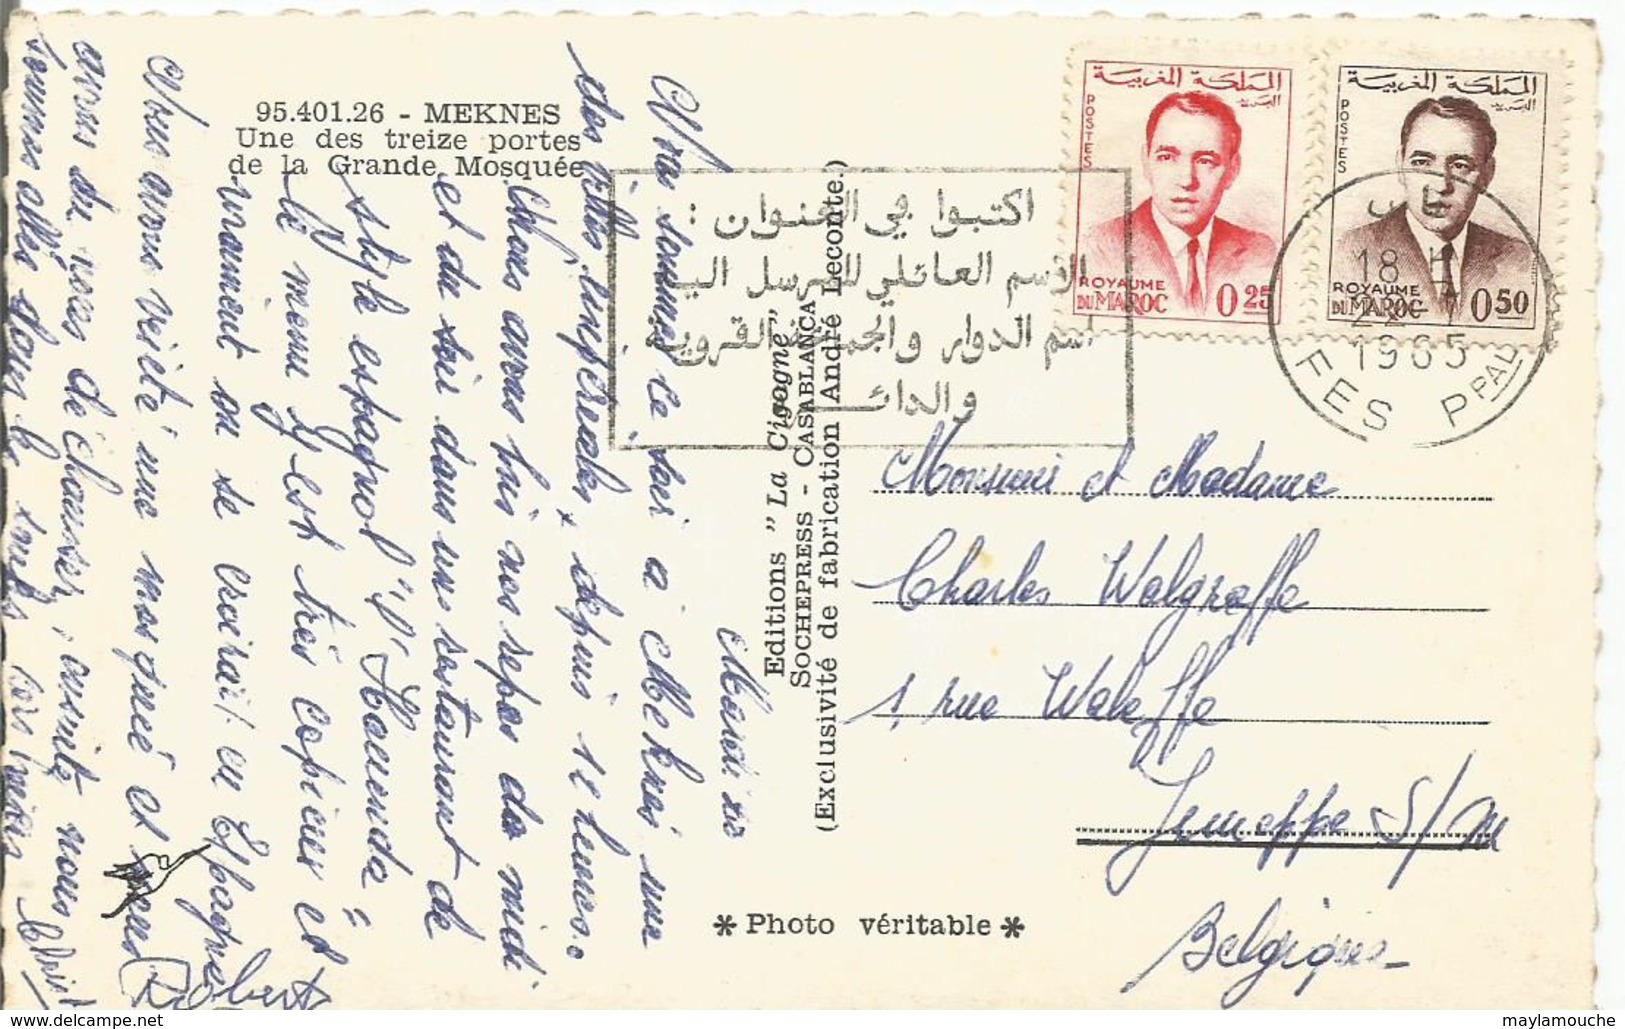 95.401.26 - MEKNES
Une des treize portes
de la Grande Mosquée
Mardi
Nous sommes ce soir à Meknès une
des villes impériales, depuis 17 heures.
Nous avons pris nos repas de midi
et du soir dans un restaurant de
style espagnol "l'Hacienda"
le menu y est très copieux et
vraiment on se croirait en Espagne
Nous avons visité une mosquée et nous
avons dû nous déchausser, ensuite nous
sommes allés dans les souks
Robert
Editions "La Cigogne"
SOCHEPRESS - CASABLANCA
(Exclusivité de fabrication André Leconte.)
* Photo véritable *
اكتبوا في العنوان :
الاسم العائلي للمرسل اليه
اسم الدوار والجماعة القروية
والدائرة
المملكة المغربية
البريد
POSTES
ROYAUME
DU MAROC 0 25
المملكة المغربية
البريد
POSTES
ROYAUME
DU MAROC 0 50
18 H
1965
FES PPAL
Monsieur et Madame
Charles Walgraffe
1, rue Waleffe
Jemeppe S/M
Belgique
maylamouche